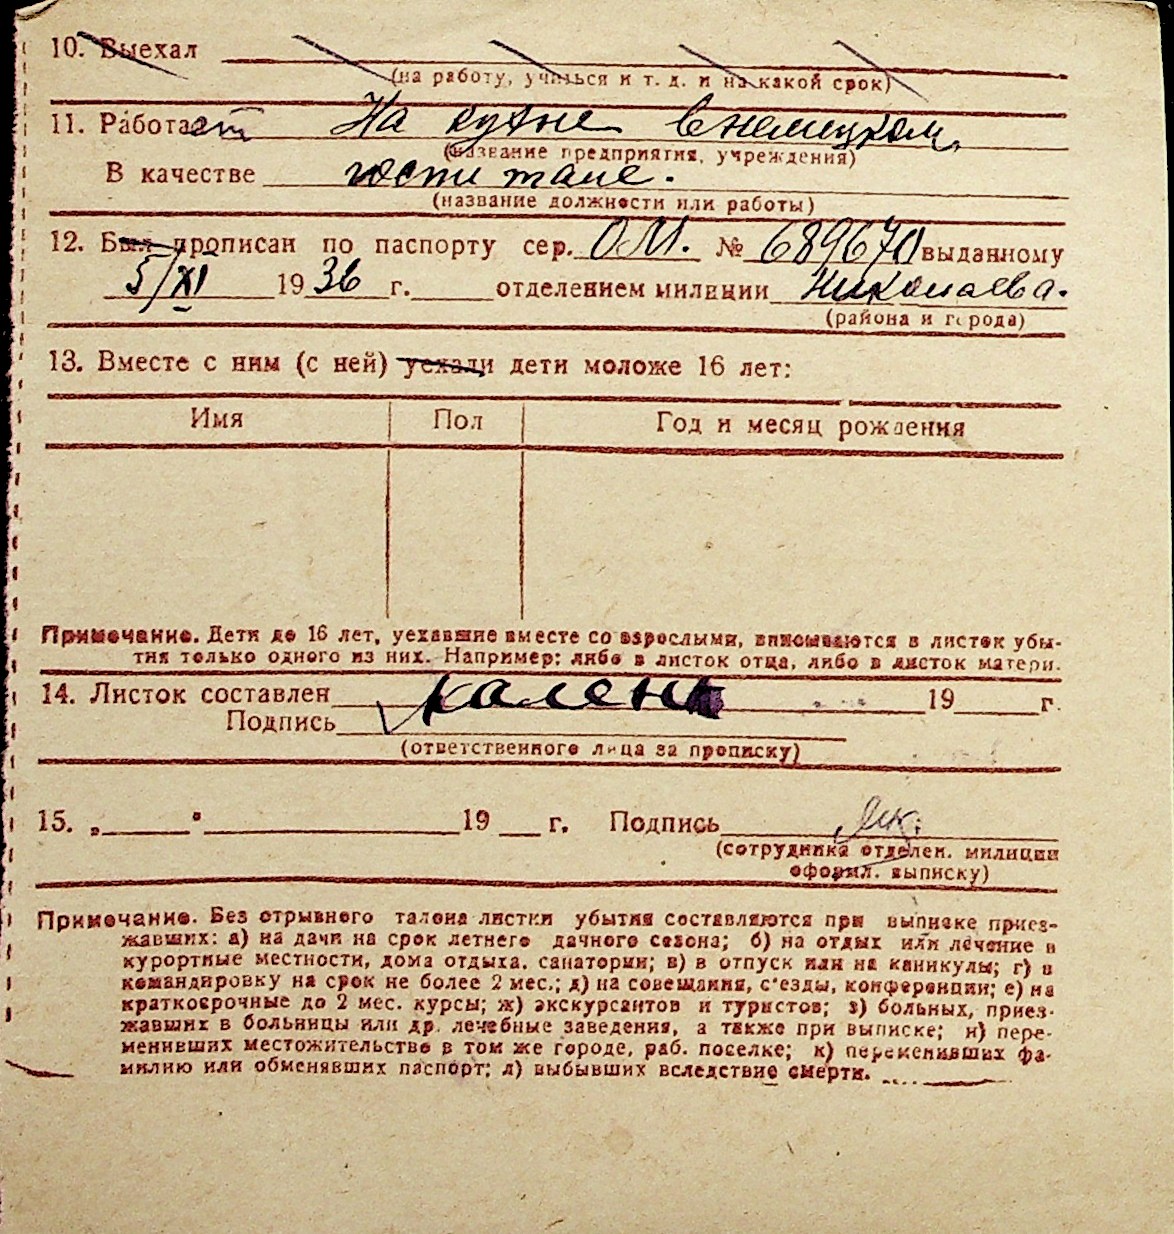 10. Выехал
(на работу, учиться и т. д. и на какой срок)
11. Работает На кухне в немецком.
(название предприятия, учреждения)
В качестве госпитале.
(название должности или работы)
12. Был прописан по паспорту сер. ОМ. № 689670 выданному
5/XI 1936 г. отделением милиции Николаева.
(района и города)
13. Вместе с ним (с ней) уехали дети моложе 16 лет:
Имя Пол Год и месяц рождения
Примечание. Дети до 16 лет, уехавшие вместе со взрослыми, вписываются в листок убы-
тия только одного из них. Например: либо в листок отца, либо в листок матери.
14. Листок составлен 19 г.
Подпись
(ответственного лица за прописку)
15. „ " 19 г. Подпись
(сотрудника отделен. милиции
оформл. выписку)
Примечание. Без отрывного талона листки убытия составляются при выписке приез-
жавших: а) на дачи на срок летнего дачного сезона; б) на отдых или лечение в
курортные местности, дома отдыха, санатории; в) в отпуск или на каникулы; г) в
командировку на срок не более 2 мес.; д) на совещания, с'езды, конференции; е) на
краткосрочные до 2 мес. курсы; ж) экскурсантов и туристов; з) больных, приез-
жавших в больницы или др. лечебные заведения, а также при выписке; и) пере-
менивших местожительство в том же городе, раб. поселке; к) переменивших фа-
милию или обменявших паспорт; л) выбывших вследствие смерти.